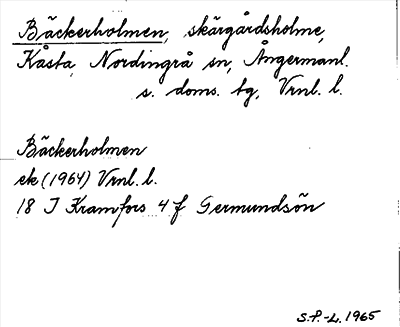 Bäckerholmen, skärgårdsholme,
Kåsta, Nordingrå sn, Ångermanl.
s. doms. tg, Vrnl. l.
Bäckerholmen
ek (1964) Vrnl. l.
18 I Kramfors 4 f Germundsön
S.P.-L. 1965